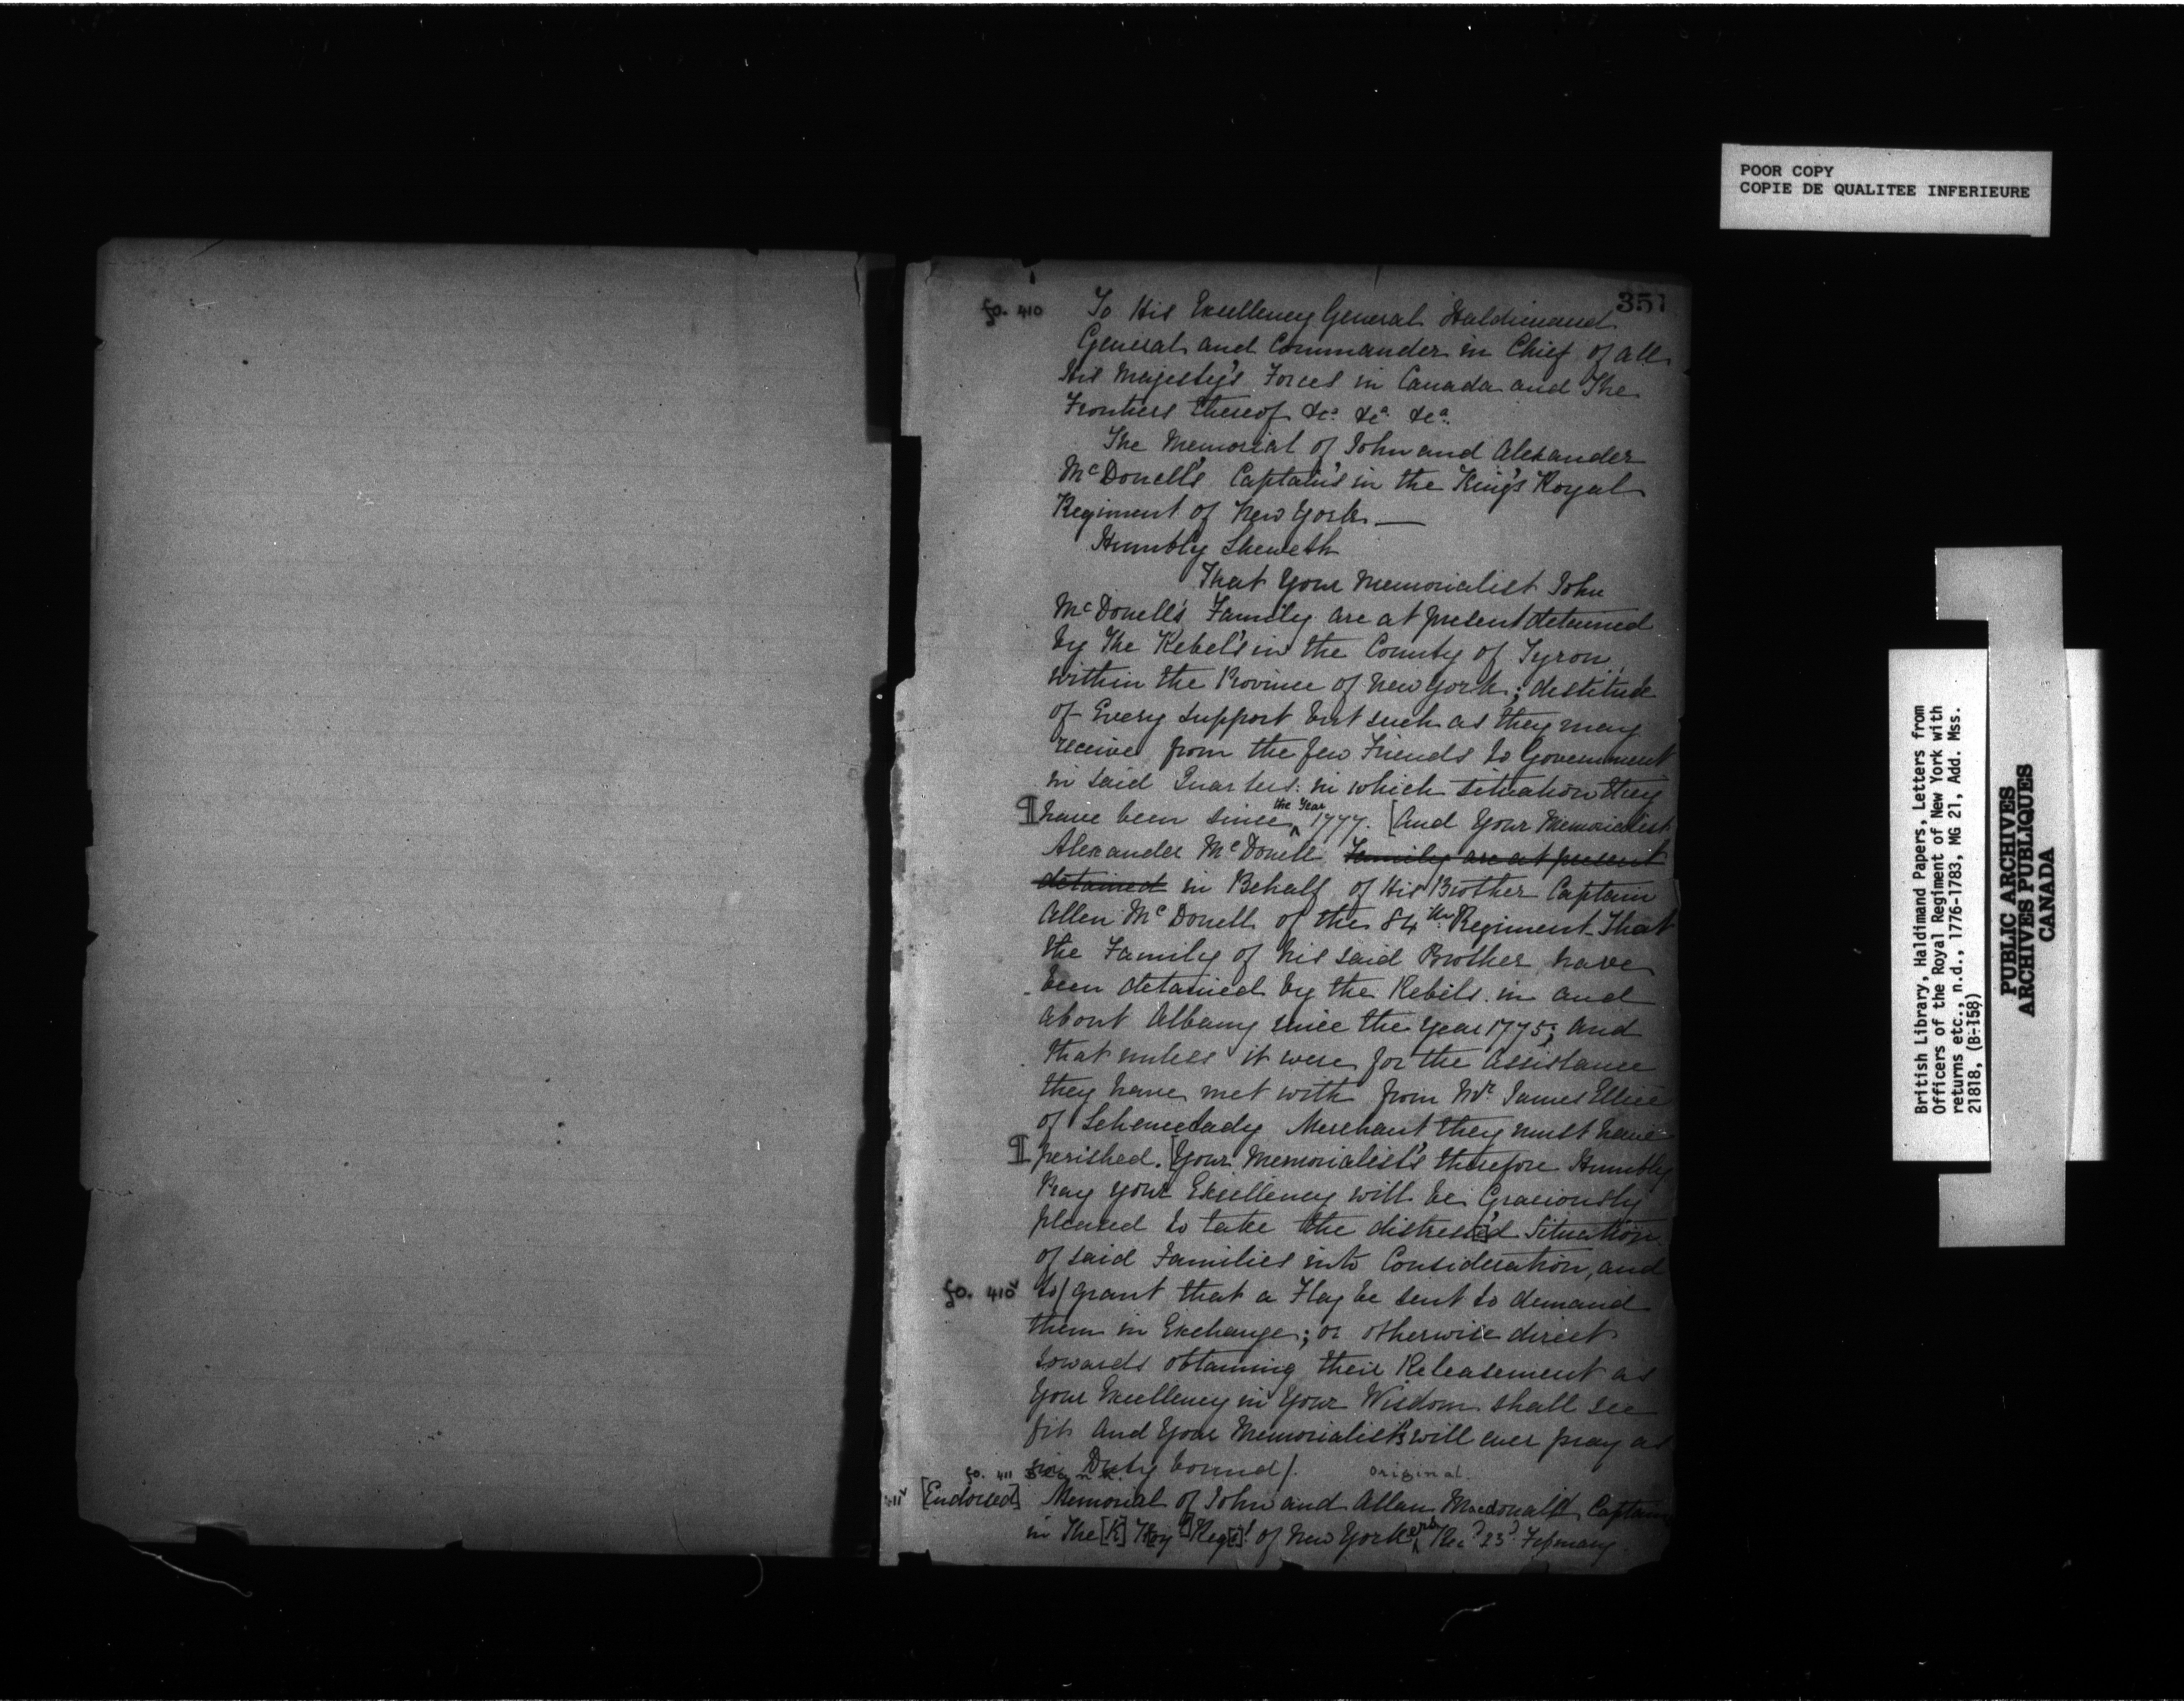 POOR COPY
COPIE DE QUALITEE INFERIEURE
351
fo. 410 To His Excellency General Haldimand
General and Commander in Chief of all
His Majesty's Forces in Canada and The
Frontiers thereof &cᵃ &cᵃ &cᵃ
The Memorial of John and Alexander
McDonell's Captain's in the King's Royal
Regiment of New York.—
Humbly Sheweth
That Your Memorialist John
McDonell's Family are at present detained
by The Rebel's in the County of Tyron,
within the Province of New York; destitute
of Every support but such as they may
receive from the few Friends to Government
in said Quarters: in which situation they
¶ have been since the Year 1777. [And Your Memorialist
Alexander McDonell Family are at present
detained in Behalf of His Brother Captain
Allen McDonell of the 84th Regiment That
the Family of his said Brother have
been detained by the Rebels in and
about Albany since the year 1775; and
that unless it were for the Assistance
they have met with from Mr James Ellice
of Schenectady Merchant they must have
¶ perished. [Your Memorialist's therefore Humbly
Pray your Excellency will be Graciously
pleased to take the distress[e]'d Situation
of said Families into Consideration, and
fo. 410v to/ grant that a Flag be sent to demand
them in Exchange; or otherwise direct
towards obtaining their Releasement as
Your Excellency in Your Wisdom shall see
fit And Your Memorialist's will ever pray as
in Duty bound/.
fo. 411 Blank. original.
[Endorsed] Memorial of John and Allan Macdonald Captains
in The [K] Roy Reg[t] of New Yorkers Rec'd 23d February
British Library, Haldimand Papers, Letters from
Officers of the Royal Regiment of New York with
returns etc., n.d., 1776-1783, MG 21, Add. Mss.
21818, (B-158)
PUBLIC ARCHIVES
ARCHIVES PUBLIQUES
CANADA